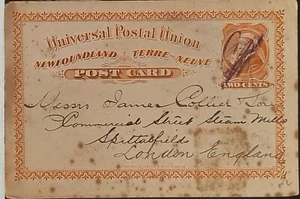 Universal Postal Union
NEWFOUNDLAND TERRE-NEUVE
POST CARD
TWO CENTS
Messrs James Collier & Son
Commercial Street Steam Mills
Spittalfields
London England